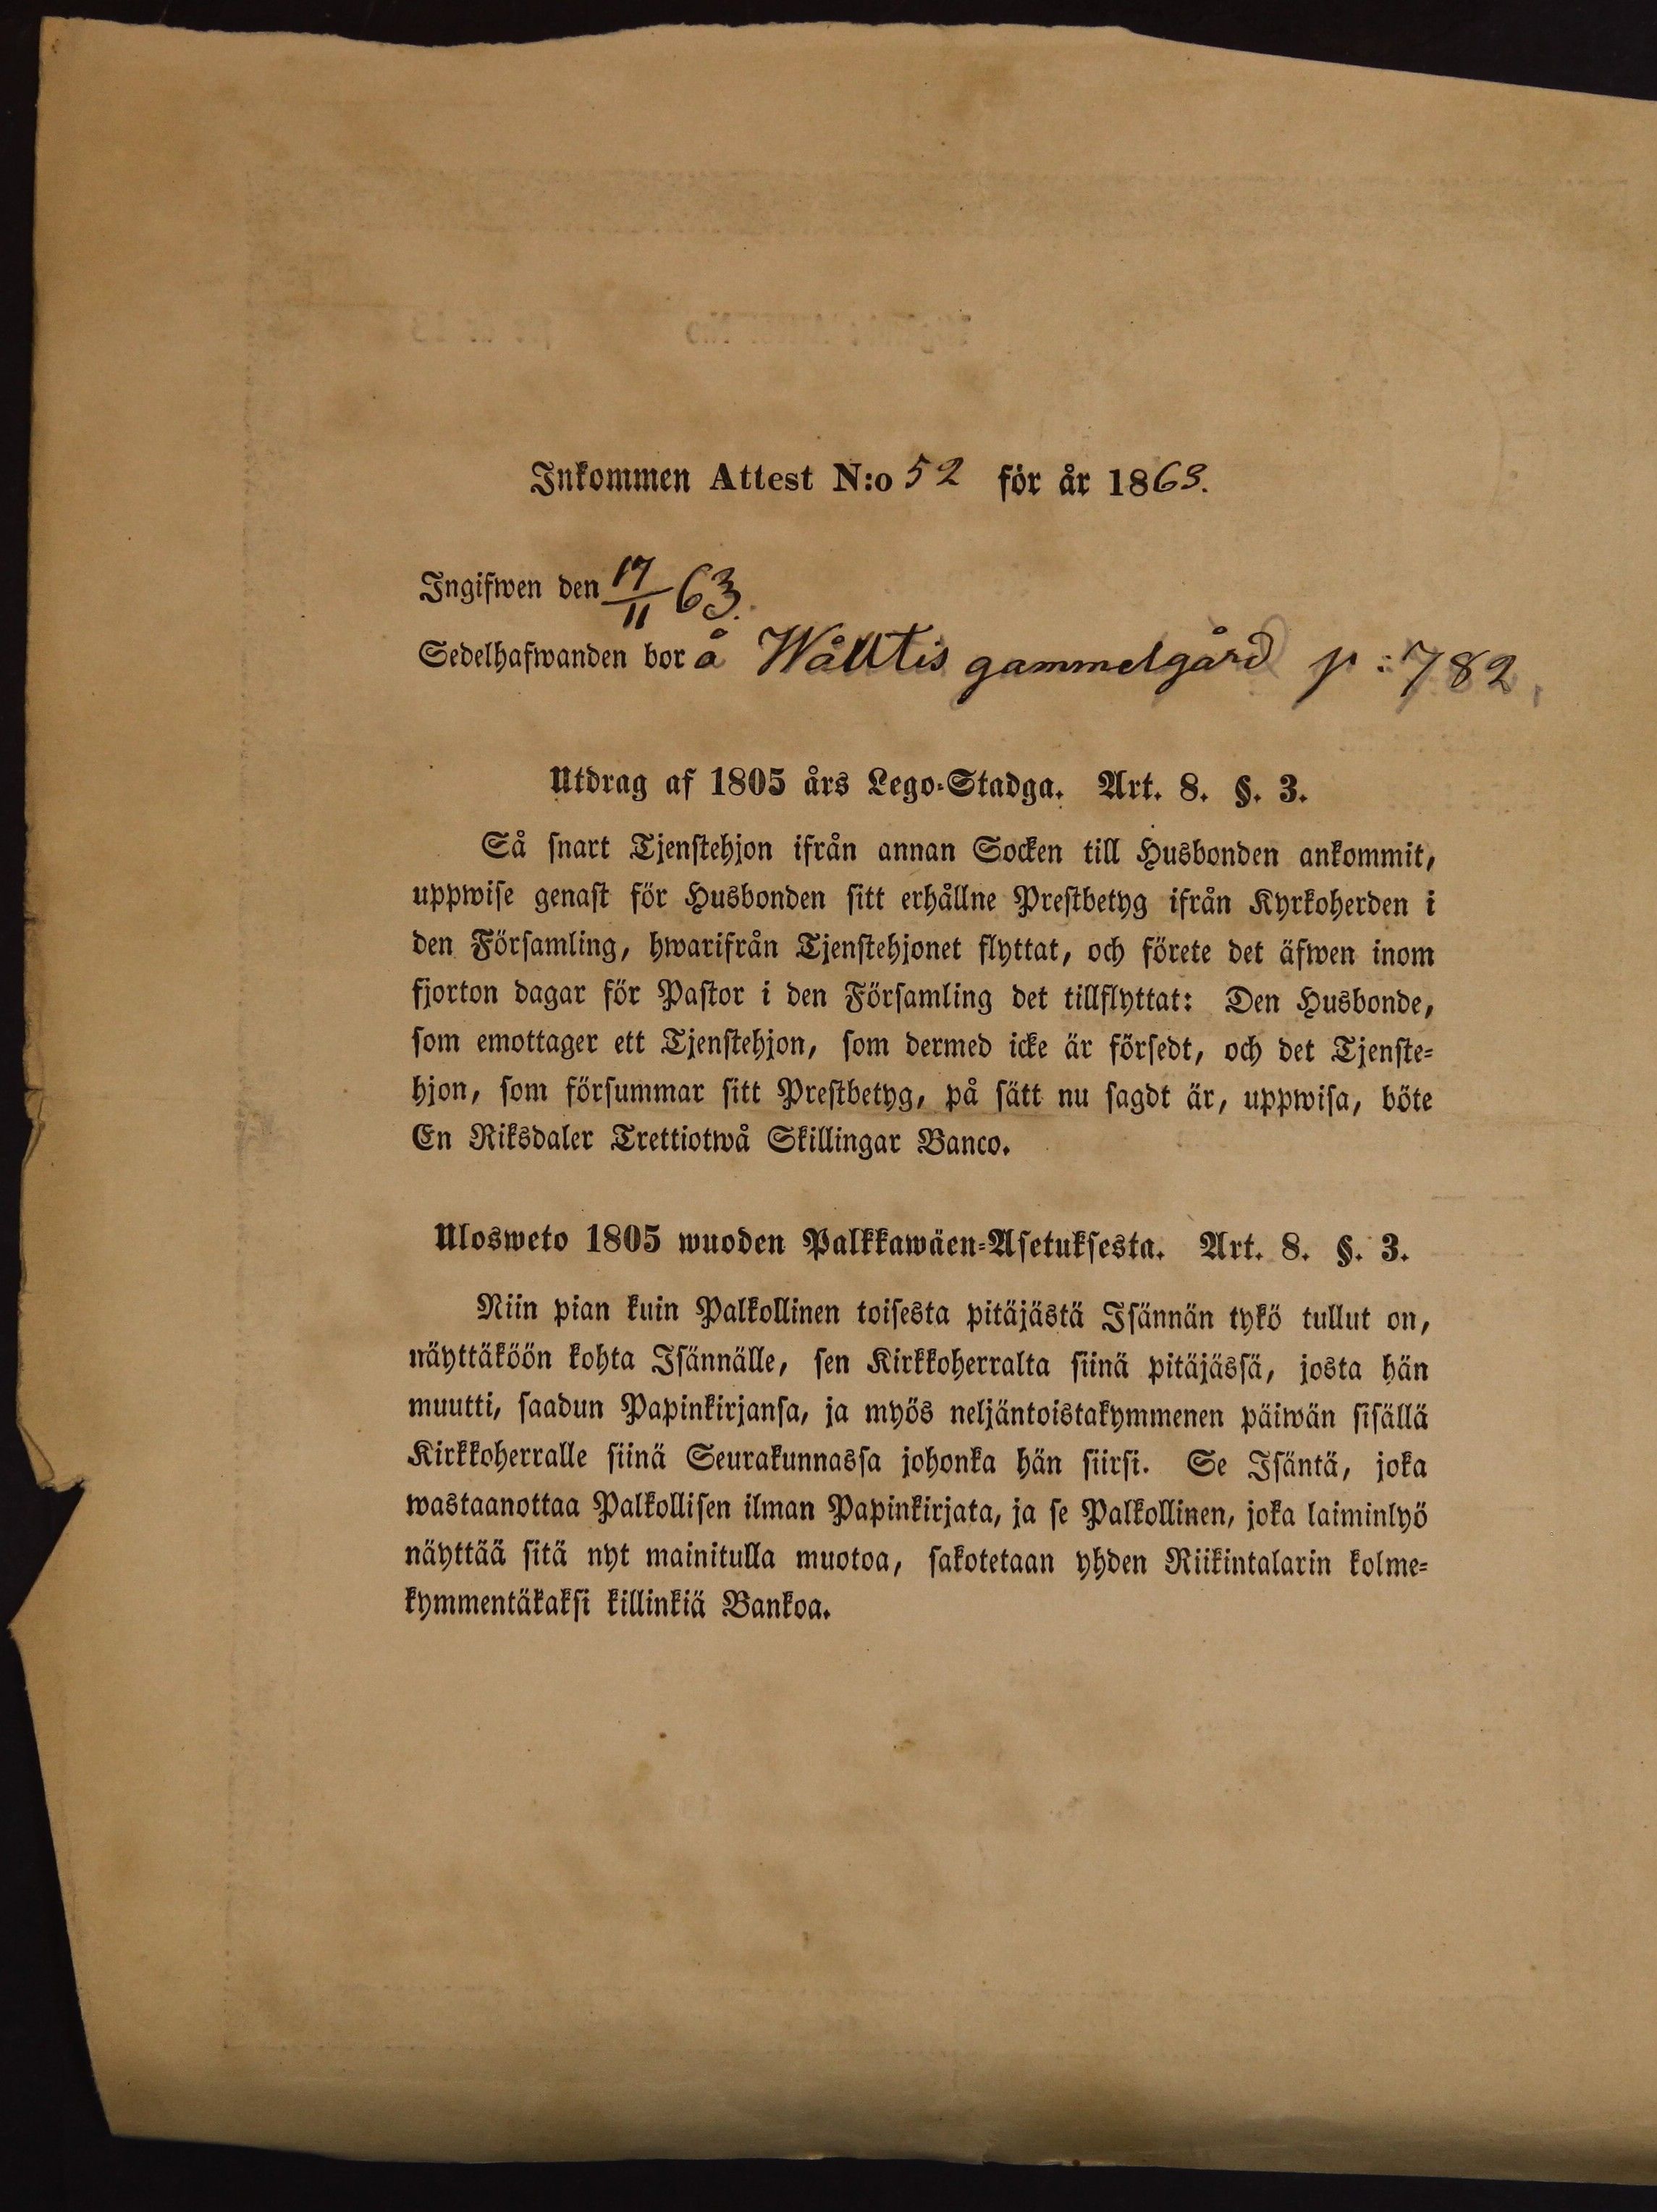 Inkommen Attest N:o 52 för år 1863.
Ingifwen den 17/11 63.
Sedelhafwanden bor å Wålltis gammelgård p: 782
Utdrag af 1805 års Lego-Stadga. Art. 8. §. 3.
Så snart Tjenstehjon ifrån annan Socken till Husbonden ankommit,
uppwise genast för Husbonden sitt erhållne Prestbetyg ifrån Kyrkoherden i
den Församling, hwarifrån Tjenstehjonet flyttat, och förete det äfwen inom
fjorton dagar för Pastor i den Församling det tillflyttat: Den Husbonde,
som emottager ett Tjenstehjon, som dermed icke är försedt, och det Tjenste-
hjon, som försummar sitt Prestbetyg, på sätt nu sagdt är, uppwisa, böte
En Riksdaler Trettiotwå Skillingar Banco.
Ulosweto 1805 wuoden Palkkawäen-Asetuksesta. Art. 8. §. 3.
Niin pian kuin Palkollinen toisesta pitäjästä Isännän tykö tullut on,
näyttäköön kohta Isännälle, sen Kirkkoherralta siinä pitäjässä, josta hän
muutti, saadun Papinkirjansa, ja myös neljäntoistakymmenen päiwän sisällä
Kirkkoherralle siinä Seurakunnassa johonka hän siirsi. Se Isäntä, joka
wastaanottaa Palkollisen ilman Papinkirjata, ja se Palkollinen, joka laiminlyö
näyttää sitä nyt mainitulla muotoa, sakotetaan yhden Riikintalarin kolme-
kymmentäkaksi killinkiä Bankoa.